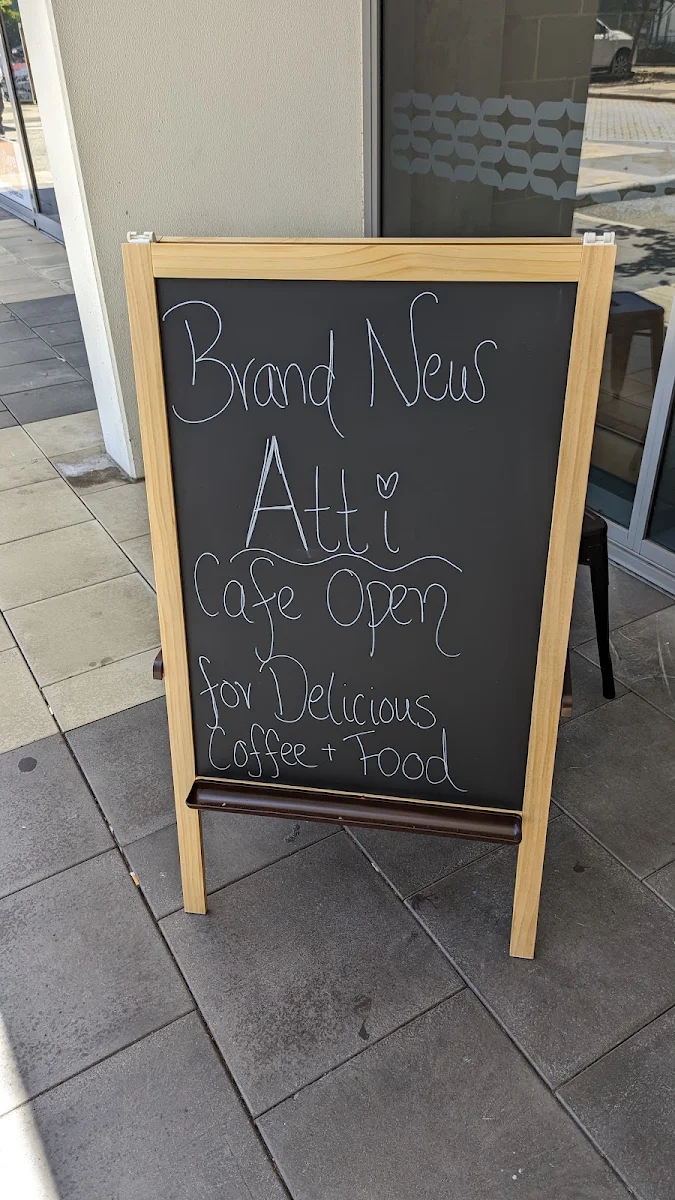 Brand New
Atti
Cafe Open
for Delicious
Coffee + Food